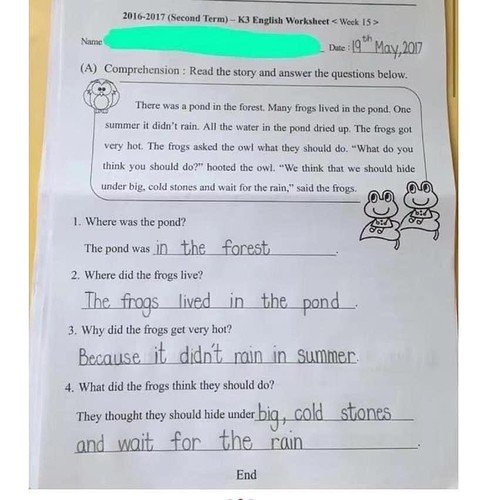 2016-2017 (Second Term) – K3 English Worksheet < Week 15 >
Name Date : 19th May, 2017
(A) Comprehension : Read the story and answer the questions below.
There was a pond in the forest. Many frogs lived in the pond. One
summer it didn't rain. All the water in the pond dried up. The frogs got
very hot. The frogs asked the owl what they should do. "What do you
think you should do?" hooted the owl. "We think that we should hide
under big, cold stones and wait for the rain," said the frogs.
1. Where was the pond?
The pond was in the forest.
2. Where did the frogs live?
The frogs lived in the pond.
3. Why did the frogs get very hot?
Because it didn't rain in summer.
4. What did the frogs think they should do?
They thought they should hide under big, cold stones
and wait for the rain.
End